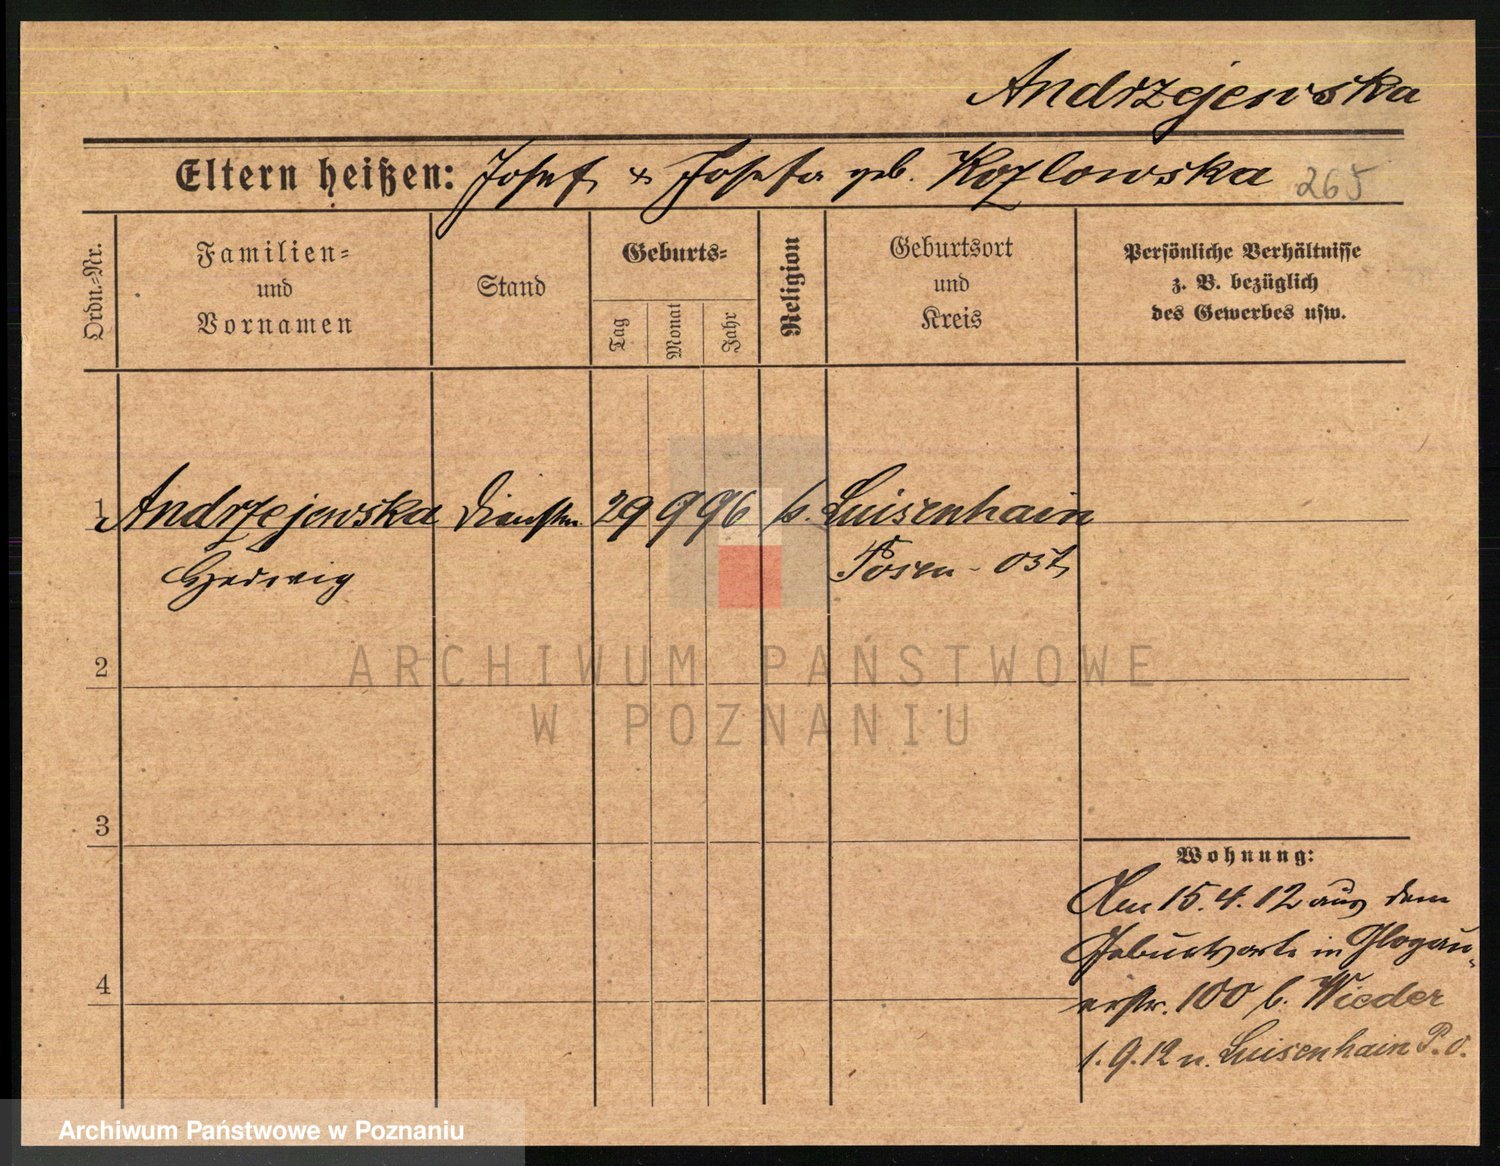 Andrzejewska
Eltern heißen: Josef & Josefa geb. Kozlowska 265
Ordn.-Nr.
Familien-
und
Vornamen
Stand
Geburts-
Tag
Monat
Jahr
Religion
Geburtsort
und
Kreis
Persönliche Verhältnisse
z. B. bezüglich
des Gewerbes usw.
1 Andrzejewska Dienstm. 29 9 96 k. Luisenhain
Hedwig Posen-Ost
ARCHIWUM PAŃSTWOWE
W POZNANIU
2
3
4
Wohnung:
Am 15.4.12 aus dem
Geburtsorte in Glogau-
erstr. 100 b. Wieder
1.9.12 n. Luisenhain P.O.
Archiwum Państwowe w Poznaniu